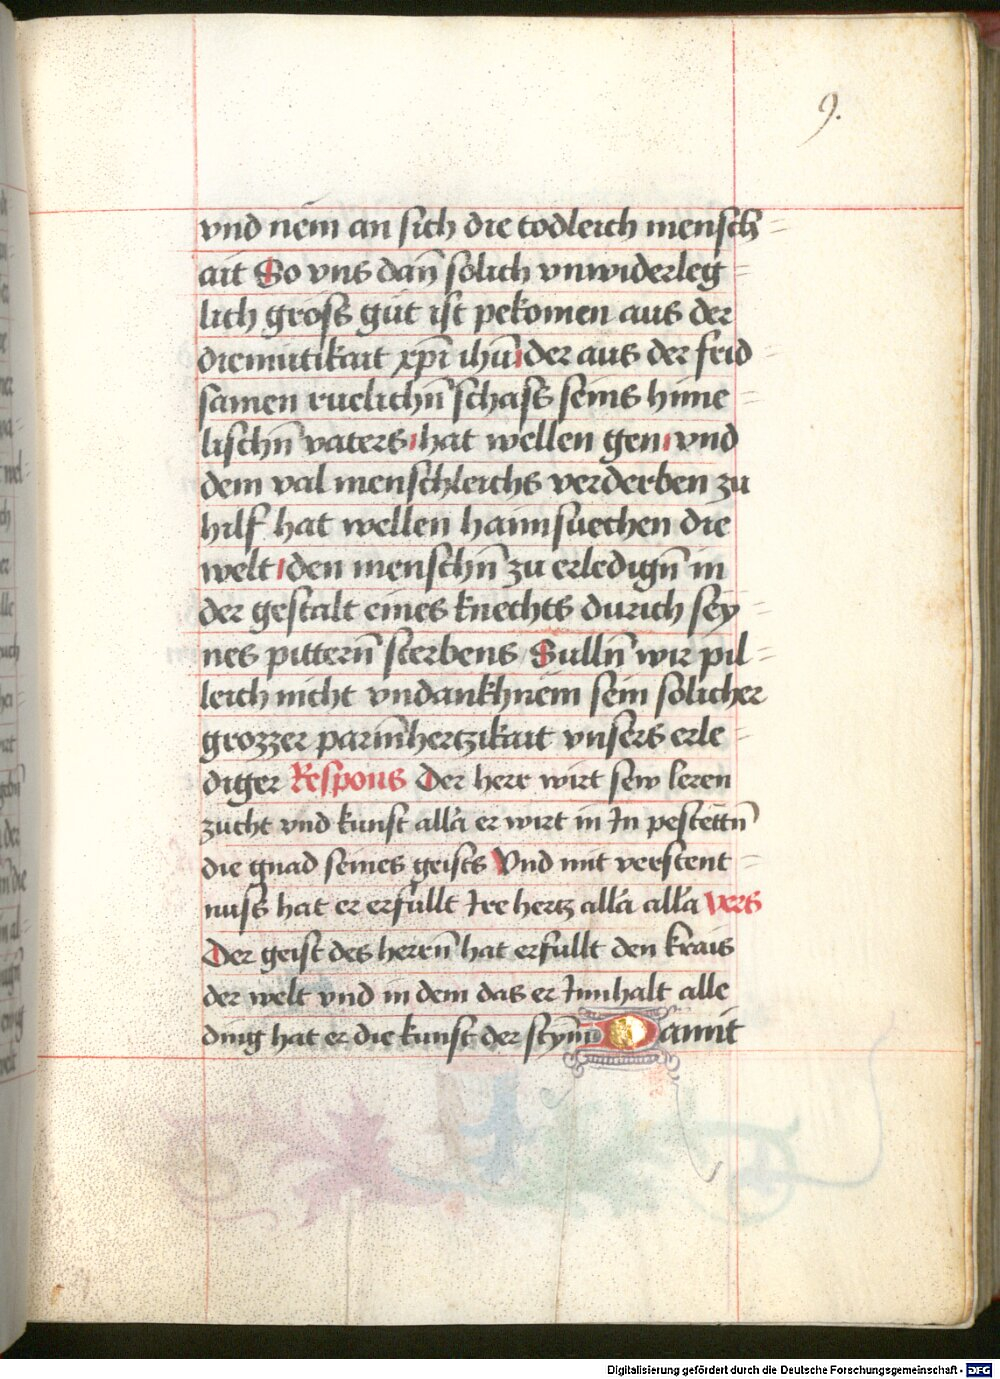 9.
vnd nem̄ an sich die todleich mensch
ait So vns dan̄ solich vnwiderleg=
lich gross gůt ist pekomen aus der
diemutikait xp̄i ih̄u der aus der frid=
samen ruelichn̄ schass seins hime=
lischn̄ vaters hat wellen gen vnd
dem val menschleichs verderben zu
hilf hat wellen haimsuechen die
welt den menschn̄ zu erledign̄ in
der gestalt eines knechts durich sey=
nes pittern̄ sterbens Sulln̄ wir pil=
leich nicht vndankhnëm sein solicher
grozzer parm̄hertzikait vnsers erle=
diger Respons Der herr wirt sew leren
zucht vnd kunst alla er wirt in In pestettn̄
die gnad seines geists Vnd mit verstent=
nuss hat er erfullt Ire hertz alla alla vers
Der geist des herren̄ hat erfullt den krais
der welt vnd in dem das er Innhalt alle
ding hat er die kunst der stym̄ Damit
Digitalisierung gefördert durch die Deutsche Forschungsgemeinschaft - DFG